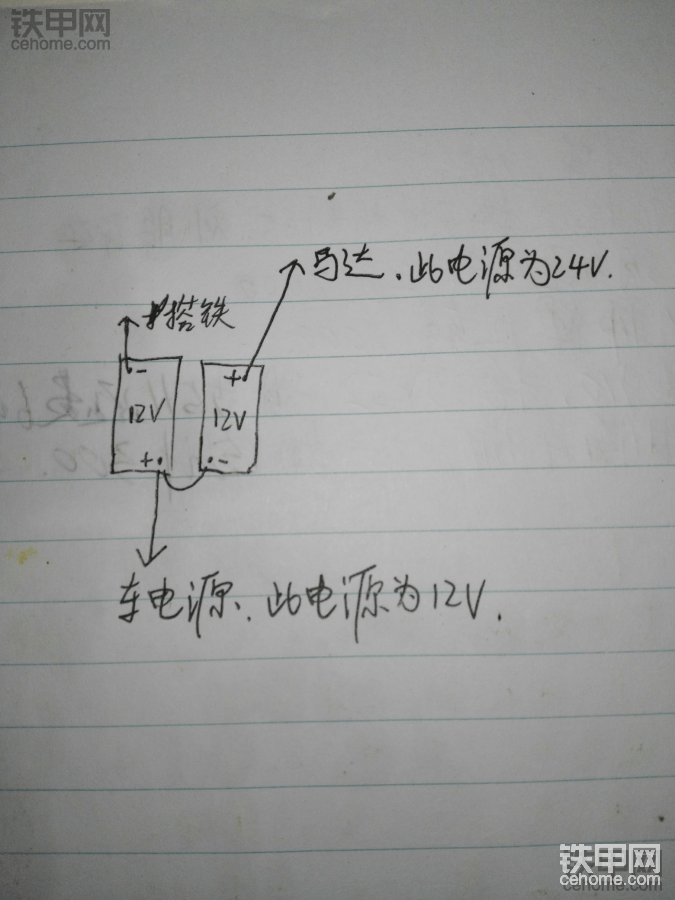 铁甲网
cehome.com
马达.此电源为24V.
搭铁
-
+
12V
12V
+
-
车电源.此电源为12V.
铁甲网
cehome.com